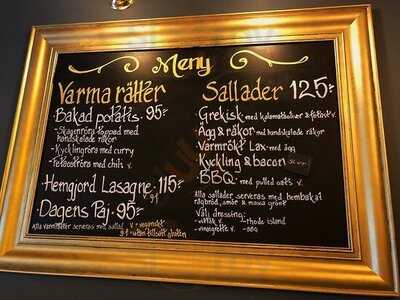 Meny
Varma rätter
·Bakad potatis 95:-
-Skagenröra toppad med
handskalade räkor
-Kycklingröra med curry
-Fetaoströra med chili v.
·Hemgjord Lasagne 115:-
v. gf
·Dagens Paj 95:-
Alla varmrätter serveras med sallad
v = veganskt
gf = utan tillsatt gluten
Sallader 125:-
·Grekisk med kalamataoliver & fetost v.
·Ägg & räkor med handskalade räkor
·Varmrökt Lax med ägg
·Kyckling & bacon
·BBQ med pulled oats v.
Alla sallader serveras med hembakat
rågbröd, smör & massa grönt
Välj dressing:
-rhode island
-vinaigrette v.
-BBQ